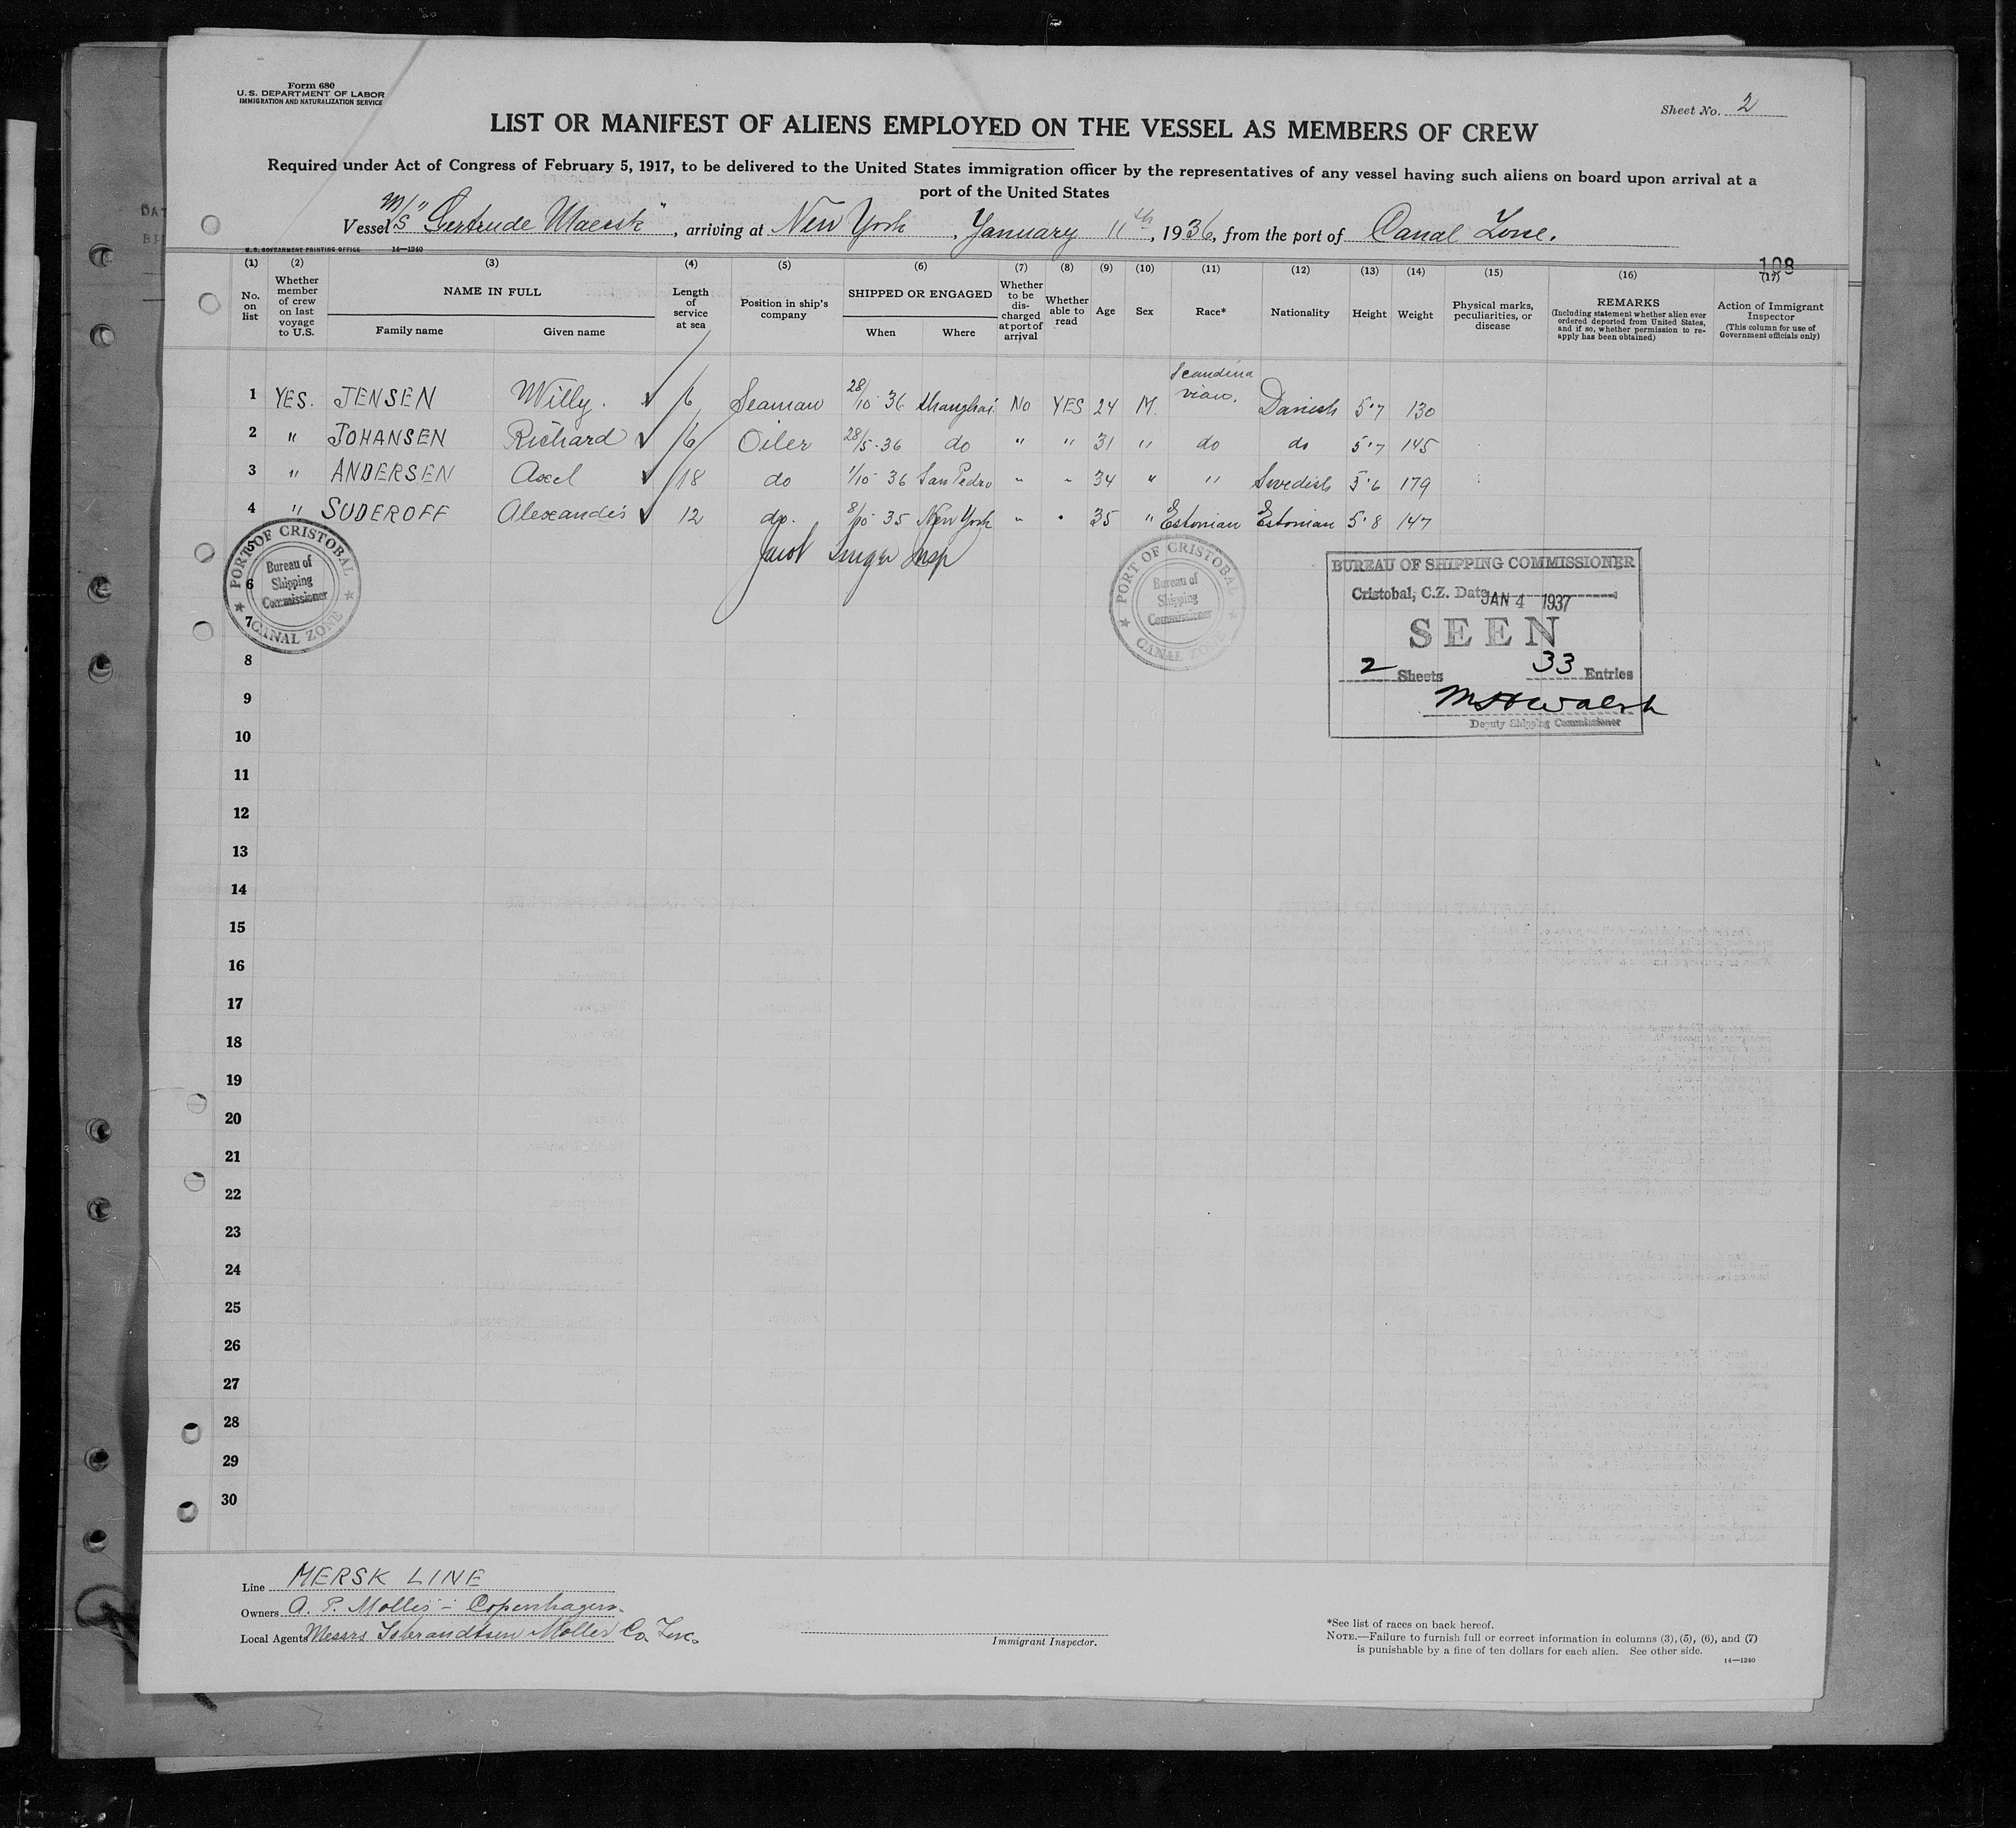 Form 680
U. S. DEPARTMENT OF LABOR
IMMIGRATION AND NATURALIZATION SERVICE
Sheet No. 2
LIST OR MANIFEST OF ALIENS EMPLOYED ON THE VESSEL AS MEMBERS OF CREW
Required under Act of Congress of February 5, 1917, to be delivered to the United States immigration officer by the representatives of any vessel having such aliens on board upon arrival at a
port of the United States
Vessel M/S "Gertrude Maersk", arriving at New York, January 11th, 1936, from the port of Canal Zone.
U. S. GOVERNMENT PRINTING OFFICE 14—1240
108
(1) (2) (3) (4) (5) (6) (7) (8) (9) (10) (11) (12) (13) (14) (15) (16) (17)
No. on list
Whether member of crew on last voyage to U.S.
NAME IN FULL
Family name Given name
Length of service at sea
Position in ship's company
SHIPPED OR ENGAGED
When Where
Whether to be discharged at port of arrival
Whether able to read
Age
Sex
Race*
Nationality
Height
Weight
Physical marks, peculiarities, or disease
REMARKS
(Including statement whether alien ever ordered deported from United States, and if so, whether permission to reapply has been obtained)
Action of Immigrant Inspector
(This column for use of Government officials only)
1 YES. JENSEN Willy. ✓ 6 Seaman 28/10 36 Shanghai No YES 24 M. Scandinavian. Danish 5'7 130
2 " JOHANSEN Richard ✓ 6 Oiler 28/5-36 do " " 31 " do do 5'7 145
3 " ANDERSEN Axel ✓ 18 do 1/10 36 San Pedro " " 34 " " Swedish 5'6 179
4 " SUDEROFF Alexander ✓ 12 do. 8/10 35 New York " " 35 " Estonian Estonian 5'8 147
5
6
7
8
9
10
11
12
13
14
15
16
17
18
19
20
21
22
23
24
25
26
27
28
29
30
PORT OF CRISTOBAL
Bureau of
Shipping
Commissioner
CANAL ZONE
Insp
PORT OF CRISTOBAL
Bureau of
Shipping
Commissioner
CANAL ZONE
BUREAU OF SHIPPING COMMISSIONER
Cristobal, C.Z. Date JAN 4 1937
SEEN
2 Sheets 33 Entries
Walsh
Deputy Shipping Commissioner
Line MERSK LINE
Owners A. P. Moller - Copenhagen.
Local Agents Messrs Isbrandtsen Moller Co. Inc.
Immigrant Inspector.
*See list of races on back hereof.
NOTE.—Failure to furnish full or correct information in columns (3), (5), (6), and (7)
is punishable by a fine of ten dollars for each alien. See other side.
14—1240